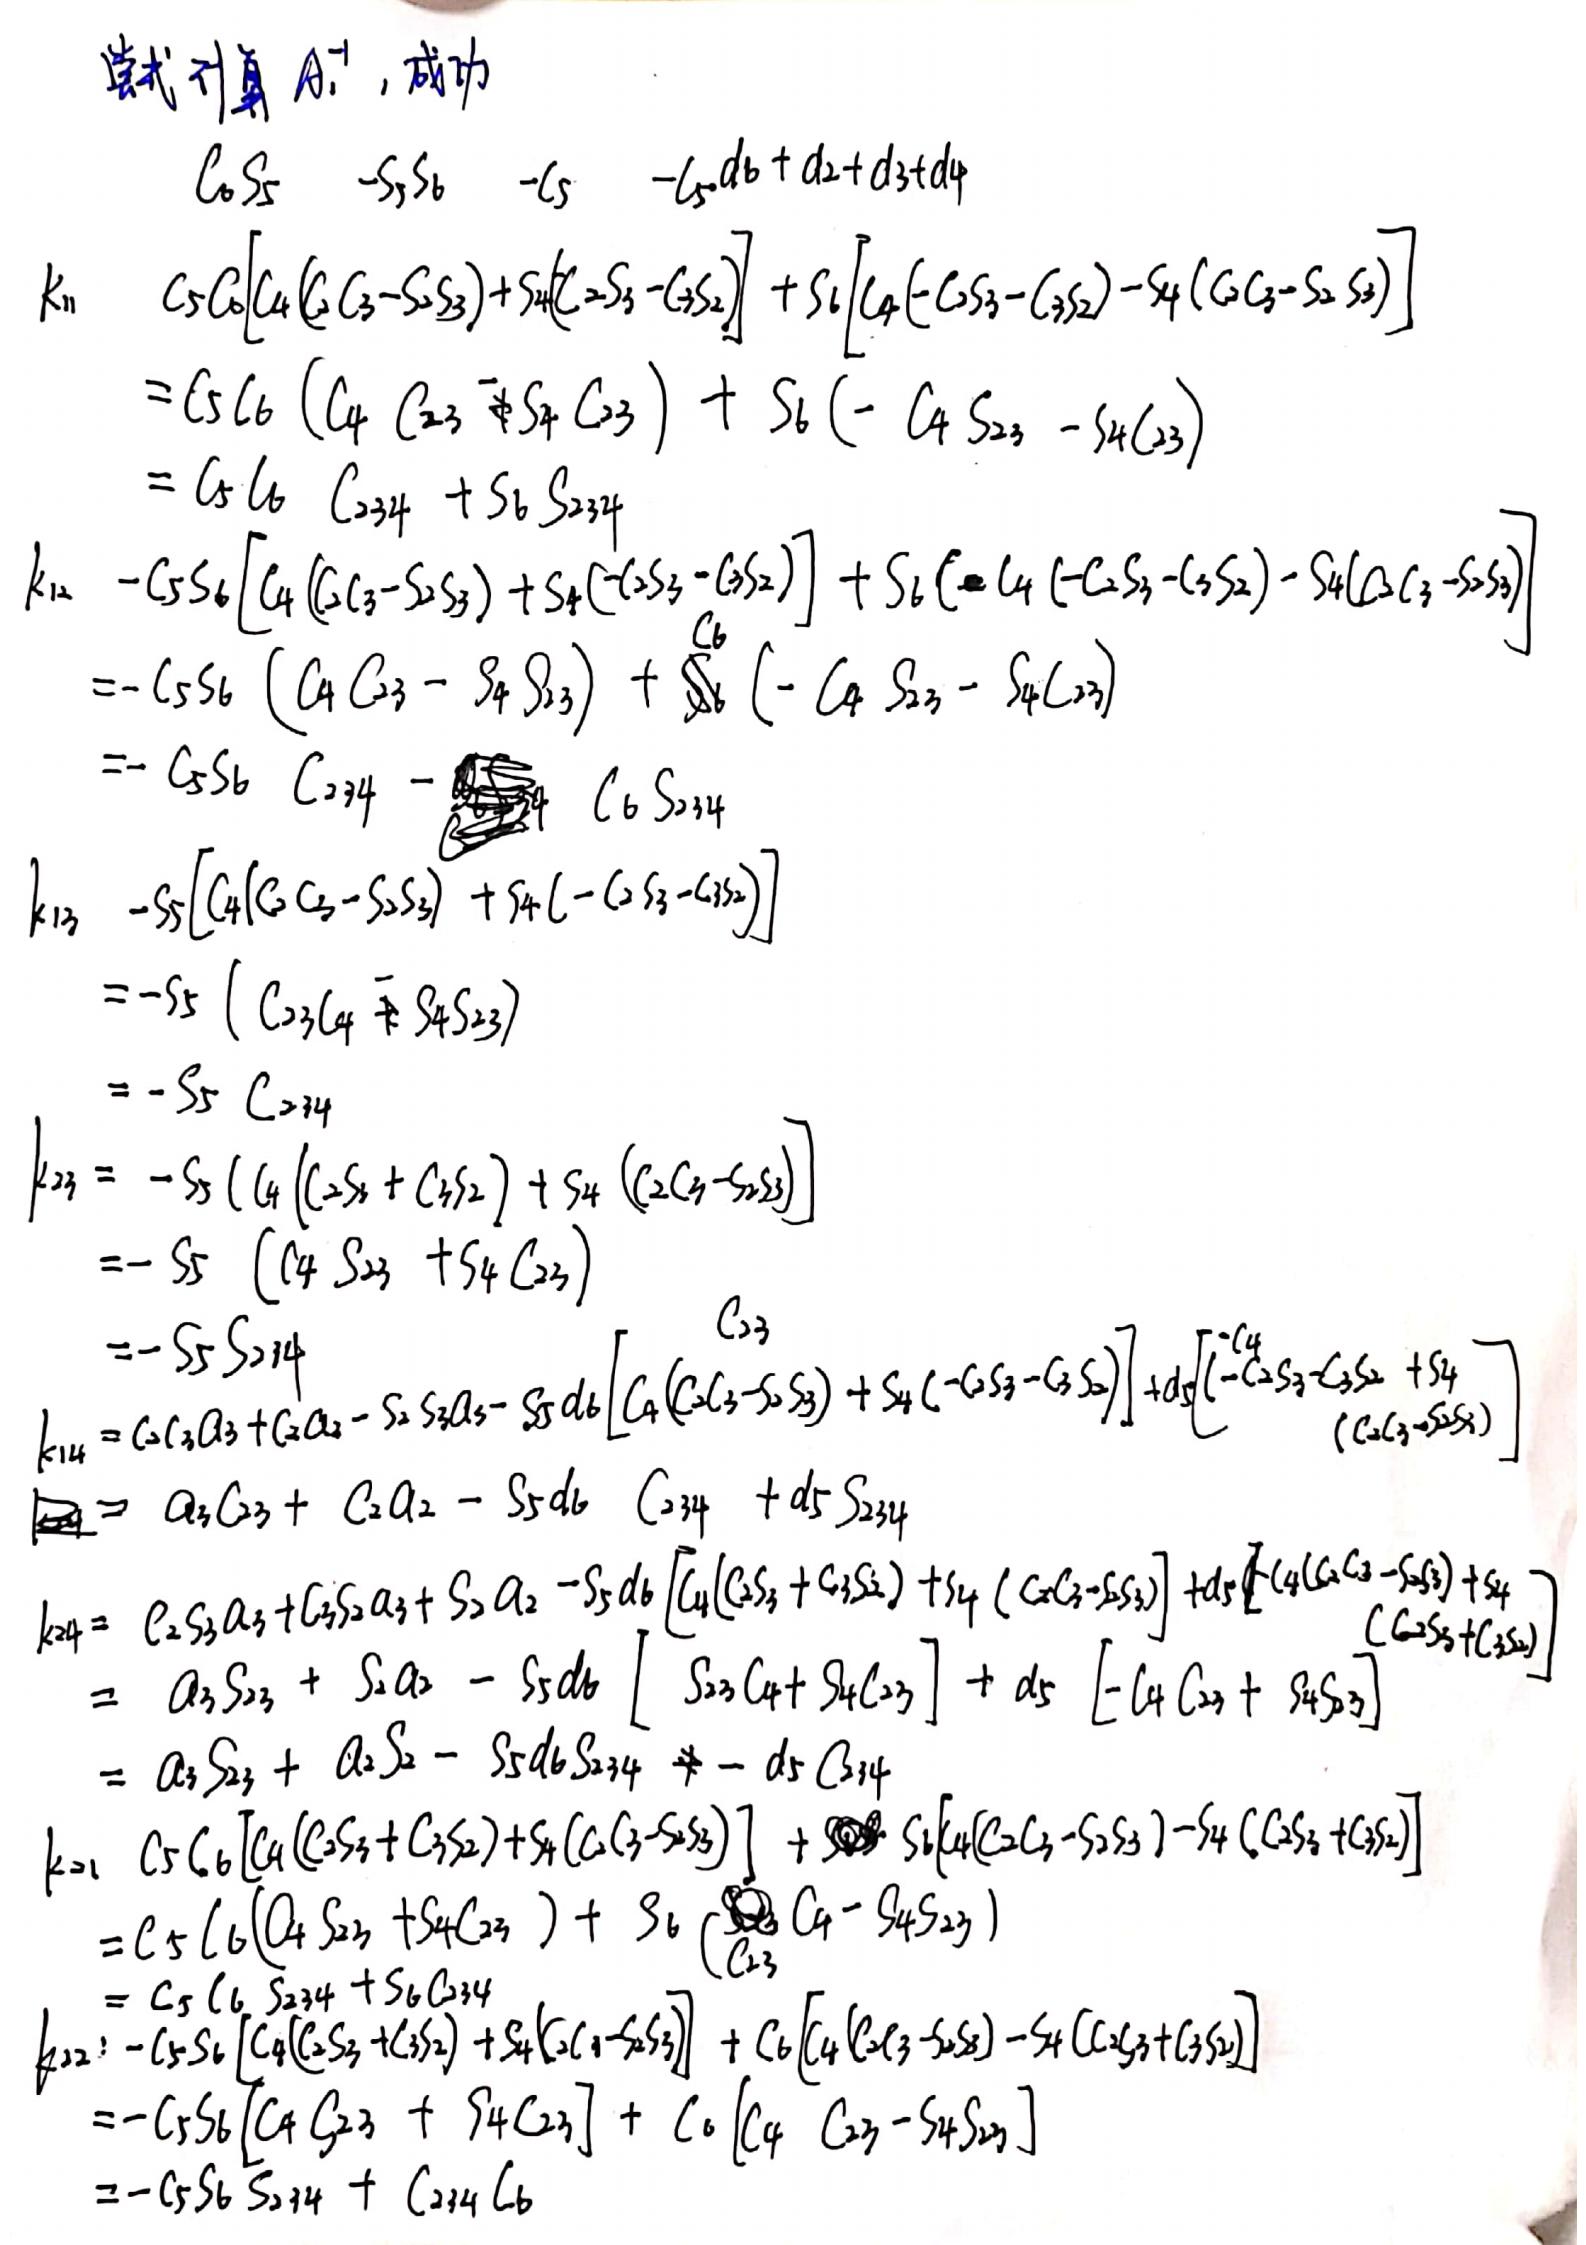 尝试计算 A₁⁻¹，成功
C₆S₅ -S₅S₆ -C₅ -C₅·d₆+d₂+d₃+d₄
k₁₁ C₅C₆[C₄(C₂C₃-S₂S₃)+S₄(C₂S₃-C₃S₂)]+S₆[C₄(-C₂S₃-C₃S₂)-S₄(C₂C₃-S₂S₃)]
=C₅C₆(C₄C₂₃-S₄C₂₃)+S₆(-C₄S₂₃-S₄C₂₃)
=C₅C₆C₂₃₄+S₆S₂₃₄
k₁₂ -C₅S₆[C₄(C₂C₃-S₂S₃)+S₄(-C₂S₃-C₃S₂)]+S₆(C₄(-C₂S₃-C₃S₂)-S₄(C₂C₃-S₂S₃)]
=-C₅S₆(C₄C₂₃-S₄S₂₃)+C₆(-C₄S₂₃-S₄C₂₃)
=-C₅S₆C₂₃₄-C₆S₂₃₄
k₁₃ -S₅[C₄(C₂C₃-S₂S₃)+S₄(-C₂S₃-C₃S₂)]
=-S₅(C₂₃C₄-S₄S₂₃)
=-S₅C₂₃₄
k₂₃=-S₅(C₄(C₂S₃+C₃S₂)+S₄(C₂C₃-S₂S₃)]
=-S₅(C₄S₂₃+S₄C₂₃)
=-S₅S₂₃₄
C₂₃
k₁₄=C₂C₃a₃+C₂a₂-S₂S₃a₃-S₅d₆[C₄(C₂C₃-S₂S₃)+S₄(-C₂S₃-C₃S₂)]+d₅[-C₄(-C₂S₃-C₃S₂+S₄
(C₂C₃-S₂S₃)]
=a₃C₂₃+C₂a₂-S₅d₆C₂₃₄+d₅S₂₃₄
k₂₄=C₂S₃a₃+C₃S₂a₃+S₂a₂-S₅d₆[C₄(C₂S₃+C₃S₂)+S₄(C₂C₃-S₂S₃)]+d₅[-C₄(C₂C₃-S₂S₃)+S₄
(C₂S₃+C₃S₂)]
=a₃S₂₃+S₂a₂-S₅d₆[S₂₃C₄+S₄C₂₃]+d₅[-C₄C₂₃+S₄S₂₃]
=a₃S₂₃+a₂S₂-S₅d₆S₂₃₄-d₅C₂₃₄
k₂₁ C₅C₆[C₄(C₂S₃+C₃S₂)+S₄(C₂C₃-S₂S₃)]+S₆[C₄(C₂C₃-S₂S₃)-S₄(C₂S₃+C₃S₂)]
=C₅C₆(C₄S₂₃+S₄C₂₃)+S₆(C₂₃C₄-S₄S₂₃)
=C₅C₆S₂₃₄+S₆C₂₃₄
k₂₂:-C₅S₆[C₄(C₂S₃+C₃S₂)+S₄(C₂C₃-S₂S₃)]+C₆[C₄(C₂C₃-S₂S₃)-S₄(C₂S₃+C₃S₂)]
=-C₅S₆[C₄S₂₃+S₄C₂₃]+C₆[C₄C₂₃-S₄S₂₃]
=-C₅S₆S₂₃₄+C₂₃₄C₆